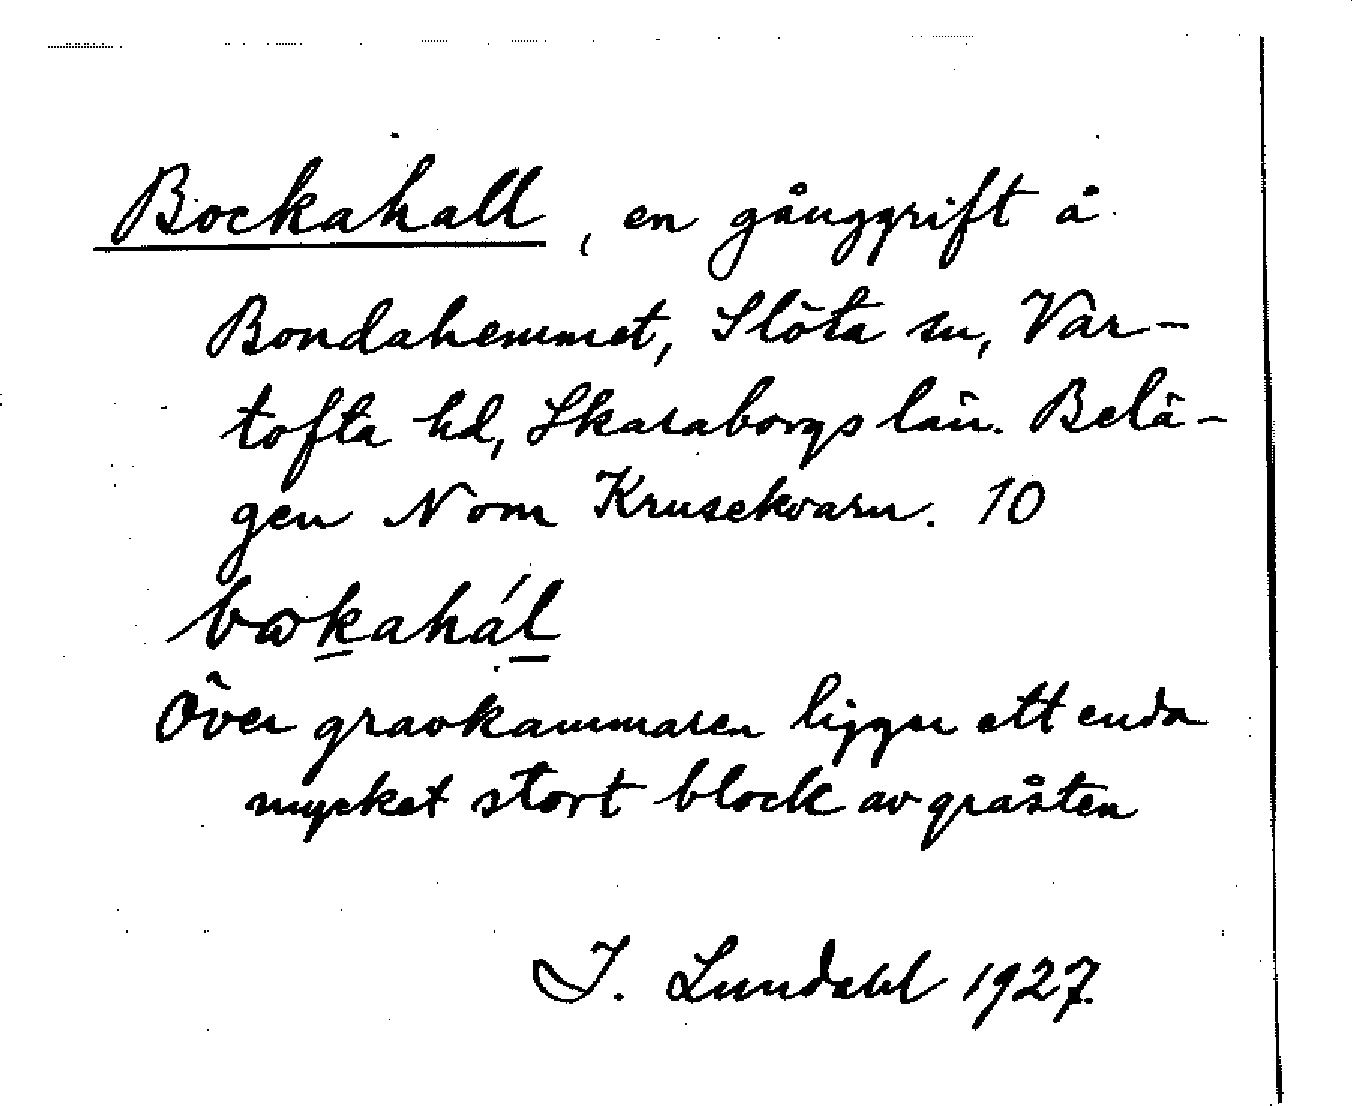 Bockahall, en gånggrift å
Bondahemmet, Slöta sn, Var-
tofta hd, Skaraborgs län. Belä-
gen N om Krusekvarn. 10
bωkahál
Över gravkammaren ligger ett enda
mycket stort block av gråsten
I. Lundahl 1927.